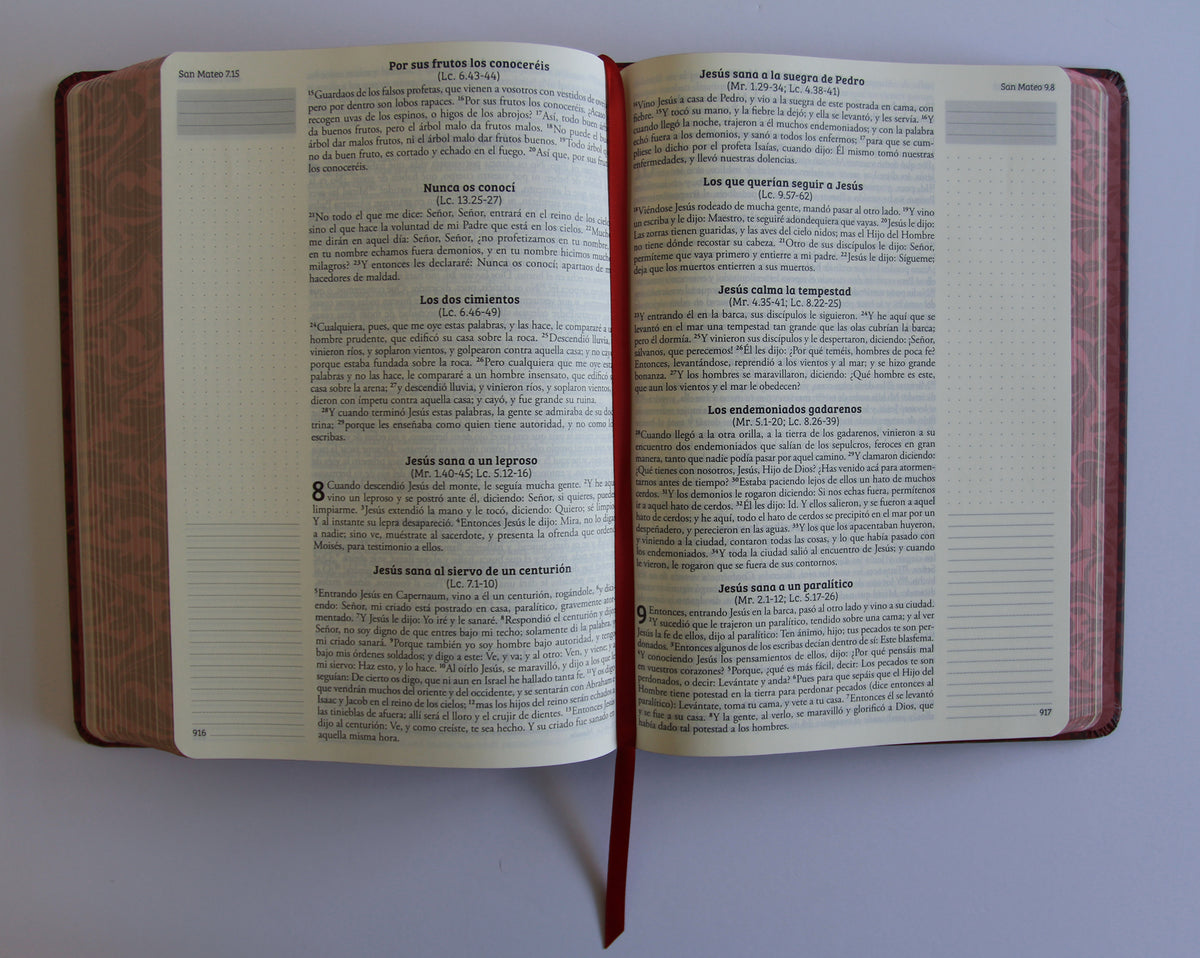 San Mateo 7.15
Por sus frutos los conoceréis
(Lc. 6.43-44)
15Guardaos de los falsos profetas, que vienen a vosotros con vestidos de
pero por dentro son lobos rapaces. 16Por sus frutos los conoceréis. ¿Acaso
recogen uvas de los espinos, o higos de los abrojos? 17Así, todo buen
da buenos frutos, pero el árbol malo da frutos malos. 18No puede el
árbol dar malos frutos, ni el árbol malo dar frutos buenos. 19Todo árbol
no da buen fruto, es cortado y echado en el fuego. 20Así que, por sus
los conoceréis.
Nunca os conocí
(Lc. 13.25-27)
21No todo el que me dice: Señor, Señor, entrará en el reino de los
sino el que hace la voluntad de mi Padre que está en los cielos.
me dirán en aquel día: Señor, Señor, ¿no profetizamos en tu nombre,
en tu nombre echamos fuera demonios, y en tu nombre hicimos
milagros? 23Y entonces les declararé: Nunca os conocí; apartaos de
hacedores de maldad.
Los dos cimientos
(Lc. 6.46-49)
24Cualquiera, pues, que me oye estas palabras, y las hace, le compararé a
hombre prudente, que edificó su casa sobre la roca. 25Descendió lluvia,
vinieron ríos, y soplaron vientos, y golpearon contra aquella casa; y no
porque estaba fundada sobre la roca. 26Pero cualquiera que me oye
palabras y no las hace, le compararé a un hombre insensato, que edificó
casa sobre la arena; 27y descendió lluvia, y vinieron ríos, y soplaron vientos,
dieron con ímpetu contra aquella casa; y cayó, y fue grande su ruina.
28Y cuando terminó Jesús estas palabras, la gente se admiraba de su doc-
trina; 29porque les enseñaba como quien tiene autoridad, y no como
escribas.
Jesús sana a un leproso
(Mr. 1.40-45; Lc. 5.12-16)
8 Cuando descendió Jesús del monte, le seguía mucha gente. 2Y he
vino un leproso y se postró ante él, diciendo: Señor, si quieres, puedes
limpiarme. 3Jesús extendió la mano y le tocó, diciendo: Quiero; sé limpio
Y al instante su lepra desapareció. 4Entonces Jesús le dijo: Mira, no lo
a nadie; sino ve, muéstrate al sacerdote, y presenta la ofrenda que
Moisés, para testimonio a ellos.
Jesús sana al siervo de un centurión
(Lc. 7.1-10)
5Entrando Jesús en Capernaum, vino a él un centurión, rogándole, 6y dici-
endo: Señor, mi criado está postrado en casa, paralítico, gravemente ator-
mentado. 7Y Jesús le dijo: Yo iré y le sanaré. 8Respondió el centurión y dijo:
Señor, no soy digno de que entres bajo mi techo; solamente di la palabra,
mi criado sanará. 9Porque también yo soy hombre bajo autoridad, y tengo
bajo mis órdenes soldados; y digo a este: Ve, y va; y al otro: Ven, y viene;
mi siervo: Haz esto, y lo hace. 10Al oírlo Jesús, se maravilló, y dijo a los que
seguían: De cierto os digo, que ni aun en Israel he hallado tanta fe. 11Y os digo
que vendrán muchos del oriente y del occidente, y se sentarán con Abraham
Isaac y Jacob en el reino de los cielos; 12mas los hijos del reino serán echados
las tinieblas de afuera; allí será el lloro y el crujir de dientes. 13Entonces Jesús
dijo al centurión: Ve, y como creíste, te sea hecho. Y su criado fue sanado
aquella misma hora.
916
San Mateo 9.8
Jesús sana a la suegra de Pedro
(Mr. 1.29-34; Lc. 4.38-41)
14Vino Jesús a casa de Pedro, y vio a la suegra de este postrada en cama, con
fiebre. 15Y tocó su mano, y la fiebre la dejó; y ella se levantó, y les servía. 16Y
cuando llegó la noche, trajeron a él muchos endemoniados; y con la palabra
echó fuera a los demonios, y sanó a todos los enfermos; 17para que se cum-
pliese lo dicho por el profeta Isaías, cuando dijo: Él mismo tomó nuestras
enfermedades, y llevó nuestras dolencias.
Los que querían seguir a Jesús
(Lc. 9.57-62)
18Viéndose Jesús rodeado de mucha gente, mandó pasar al otro lado. 19Y vino
un escriba y le dijo: Maestro, te seguiré adondequiera que vayas. 20Jesús le dijo:
Las zorras tienen guaridas, y las aves del cielo nidos; mas el Hijo del Hombre
no tiene dónde recostar su cabeza. 21Otro de sus discípulos le dijo: Señor,
permíteme que vaya primero y entierre a mi padre. 22Jesús le dijo: Sígueme;
deja que los muertos entierren a sus muertos.
Jesús calma la tempestad
(Mr. 4.35-41; Lc. 8.22-25)
23Y entrando él en la barca, sus discípulos le siguieron. 24Y he aquí que se
levantó en el mar una tempestad tan grande que las olas cubrían la barca;
pero él dormía. 25Y vinieron sus discípulos y le despertaron, diciendo: ¡Señor,
sálvanos, que perecemos! 26Él les dijo: ¿Por qué teméis, hombres de poca fe?
Entonces, levantándose, reprendió a los vientos y al mar; y se hizo grande
bonanza. 27Y los hombres se maravillaron, diciendo: ¿Qué hombre es este,
que aun los vientos y el mar le obedecen?
Los endemoniados gadarenos
(Mr. 5.1-20; Lc. 8.26-39)
28Cuando llegó a la otra orilla, a la tierra de los gadarenos, vinieron a su
encuentro dos endemoniados que salían de los sepulcros, feroces en gran
manera, tanto que nadie podía pasar por aquel camino. 29Y clamaron diciendo:
¿Qué tienes con nosotros, Jesús, Hijo de Dios? ¿Has venido acá para atormen-
tarnos antes de tiempo? 30Estaba paciendo lejos de ellos un hato de muchos
cerdos. 31Y los demonios le rogaron diciendo: Si nos echas fuera, permítenos
ir a aquel hato de cerdos. 32Él les dijo: Id. Y ellos salieron, y se fueron a aquel
hato de cerdos; y he aquí, todo el hato de cerdos se precipitó en el mar por un
despeñadero, y perecieron en las aguas. 33Y los que los apacentaban huyeron,
y viniendo a la ciudad, contaron todas las cosas, y lo que había pasado con
los endemoniados. 34Y toda la ciudad salió al encuentro de Jesús; y cuando
le vieron, le rogaron que se fuera de sus contornos.
Jesús sana a un paralítico
(Mr. 2.1-12; Lc. 5.17-26)
9 Entonces, entrando Jesús en la barca, pasó al otro lado y vino a su ciudad.
2Y sucedió que le trajeron un paralítico, tendido sobre una cama; y al ver
Jesús la fe de ellos, dijo al paralítico: Ten ánimo, hijo; tus pecados te son per-
donados. 3Entonces algunos de los escribas decían dentro de sí: Este blasfema.
4Y conociendo Jesús los pensamientos de ellos, dijo: ¿Por qué pensáis mal
en vuestros corazones? 5Porque, ¿qué es más fácil, decir: Los pecados te son
perdonados, o decir: Levántate y anda? 6Pues para que sepáis que el Hijo del
Hombre tiene potestad en la tierra para perdonar pecados (dice entonces al
paralítico): Levántate, toma tu cama, y vete a tu casa. 7Entonces él se levantó
y se fue a su casa. 8Y la gente, al verlo, se maravilló y glorificó a Dios, que
había dado tal potestad a los hombres.
917